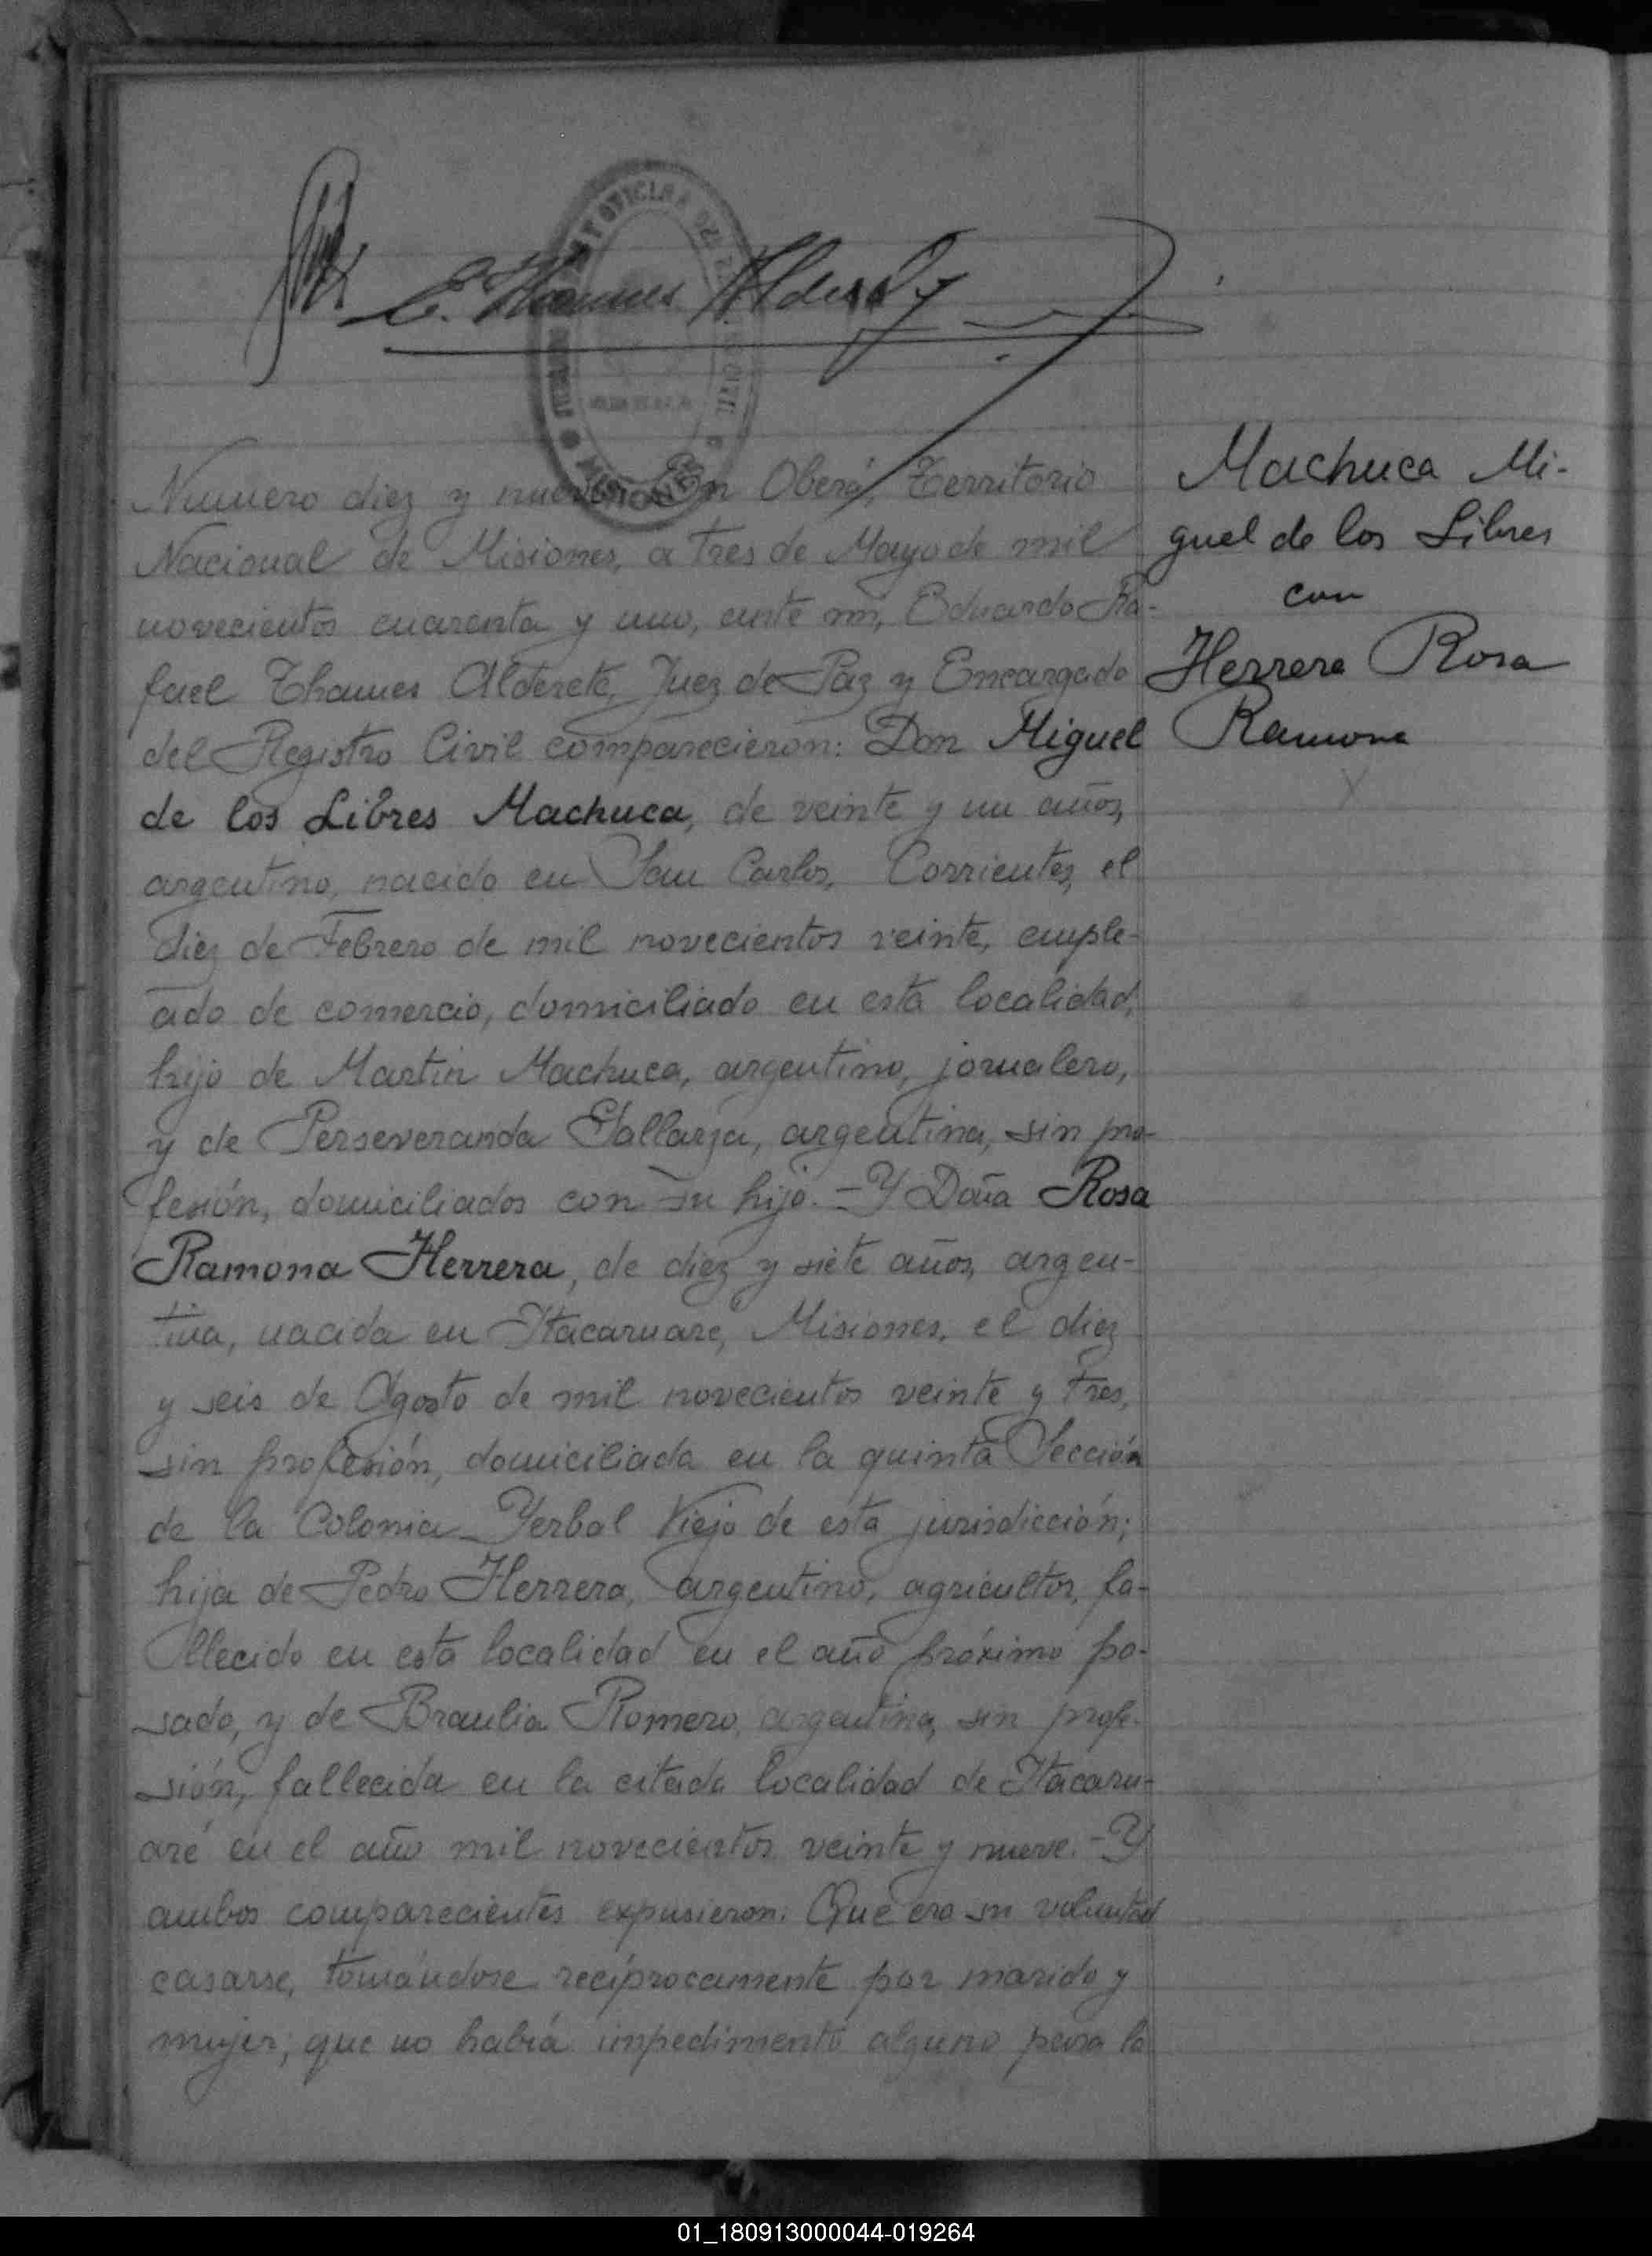 E. Thames Alderete
OFICINA DEL
CIVIL
MISIONES
Numero diez y nueve. En Oberá, Territorio
Nacional de Misiones, a tres de Mayo de mil
novecientos cuarenta y uno, ante mi, Eduardo Ra-
fael Thames Alderete, Juez de Paz y Encargado
del Registro Civil comparecieron: Don Miguel
de los Libres Machuca, de veinte y un años,
argentino, nacido en San Carlos, Corrientes, el
diez de Febrero de mil novecientos veinte, emple-
ado de comercio, domiciliado en esta localidad,
hijo de Martin Machuca, argentino, jornalero,
y de Perseveranda Gallarza, argentina, sin pro-
fesión, domiciliados con su hijo. - Y Doña Rosa
Ramona Herrera, de diez y siete años, argen-
tina, nacida en Itacaruare, Misiones, el diez
y seis de Agosto de mil novecientos veinte y tres,
sin profesión, domiciliada en la quinta Sección
de la Colonia Yerbal Viejo de esta jurisdicción;
hija de Pedro Herrera, argentino, agricultor, fa-
llecido en esta localidad en el año próximo pa-
sado, y de Braulia Romero, argentina, sin profe-
sión, fallecida en la citada localidad de Itacaru-
aré en el año mil novecientos veinte y nueve. - Y
ambos comparecientes expusieron: Que era su voluntad
casarse, tomándose recíprocamente por marido y
mujer; que no había impedimento alguno para la
Machuca Mi-
guel de los Libres
con
Herrera Rosa
Ramona
01_180913000044-019264